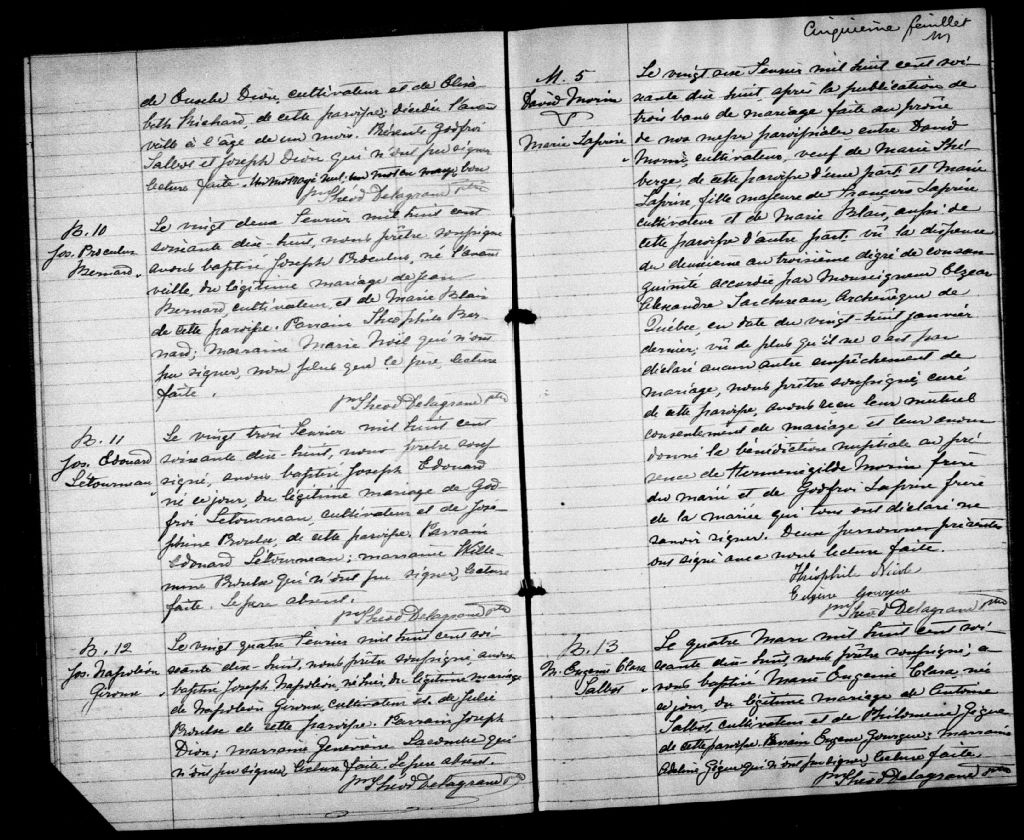 de Eusebe Dion, cultivateur et de Elisa-
beth Richard, de cette paroisse, décédée l'avant
veille à l'âge de un mois. Présents Godfroi
Talbot et Joseph Dion qui n'ont pu signer
lecture faite. Un mot rayé nul. un mot en marge bon
Théod Delagrave ptre
B. 10
Jos. Proculus
Bernard
Le vingt deux Fevrier mil huit cent
soixante dix-huit, nous prêtre soussigné
avons baptisé Joseph Proculus, né l'avant
veille, du légitime mariage de Jean
Bernard cultivateur, et de Marie Blais
de cette paroisse. Parrain Théophile Ber-
nard; Marraine Marie Noël qui n'ont
pu signer, non plus que le père, lecture
faite.
Théod Delagrave ptre
B. 11
Jos. Edouard
Létourneau
Le vingt trois Fevrier mil huit cent
soixante dix-huit, nous prêtre sous
signé, avons baptisé Joseph Edouard
né ce jour, du légitime mariage de God
froi Létourneau, cultivateur et de José-
phine Boulse, de cette paroisse. Parrain
Edouard Létourneau; marraine
Boulse qui n'ont pu signer, lecture
faite. Le père absent.
Théod Delagrave ptre
B. 12
Jos. Napoléon
Giroux
Le vingt quatre Fevrier mil huit cent soi-
xante dix-huit, nous prêtre soussigné avons
baptisé Joseph Napoléon, né hier, du légitime mariage
de Napoléon Giroux, cultivateur et de Julie
Boulse de cette paroisse. Parrain Joseph
Dion; marraine Geneviève Lacombe qui
n'ont pu signer, lecture faite. Le père absent.
Théod Delagrave ptre
Cinquième feuillet
M. 5
David Morin
Marie Laprise
Le vingt six Fevrier mil huit cent soi-
xante dix huit, après la publication de
trois bans de mariage faite au prône
de nos messes paroissiales entre David
Morin, cultivateur, veuf de Marie Thé
berge, de cette paroisse d'une part et Marie
Laprise, fille majeure de François Laprise
cultivateur et de Marie Blais, aussi de
cette paroisse d'autre part. vû la dispense
du deuxième au troisième dégré de consan
guinité accordée par Monseigneur Elzear
Alexandre Taschereau, Archevêque de
Québec, en date du vingt-huit janvier
dernier; vû de plus qu'il ne s'est pas
déclaré aucun autre empêchement de
mariage, nous prêtre soussigné, curé
de cette paroisse, avons reçu leur mutuel
consentement de mariage et leur avons
donné la bénédiction nuptiale au pré
sence de Hermenégilde Morin frère
du marié et de Godfroi Laprise frère
de la mariée qui tous ont déclaré ne
savoir signer. Deux personnes présentes
ont signé avec nous lecture faite.
Théophile Nicole
Eugène Gourgue
Théod Delagrave ptre
B. 13
M. Eugenie Clara
Talbot
Le quatre Mars mil huit cent soi-
xante dix-huit, nous prêtre soussigné, a-
vons baptisé Marie Eugenie Clara, née
ce jour, du légitime mariage de Antoine
Talbot, cultivateur et de Philomène
de cette paroisse. Parrain Eugène Gourgue; marraine
qui n'ont pu signer, lecture faite.
Théod Delagrave ptre